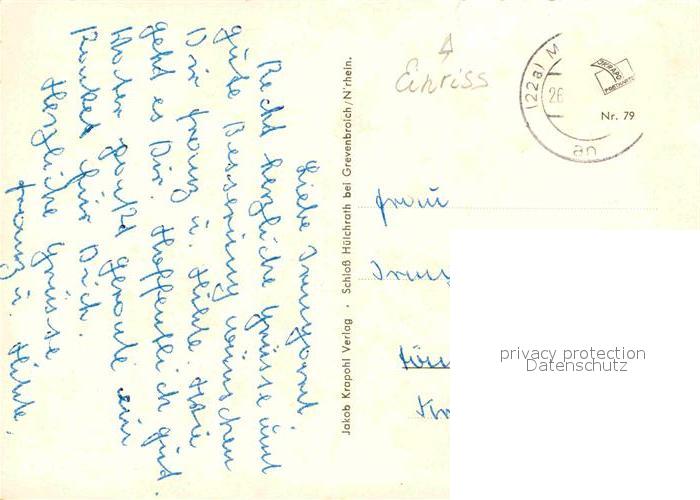 Liebe Irmgard.
Recht herzliche Grüsse und
gute Besserung wünschen
Dir Franz u. Hilde. Wie
geht es Dir. Hoffentlich gut.
Vater packt gerade ein
Paket für Dich.
Herzliche Grüsse
Franz u. Hilde.
Jakob Krapohl Verlag · Schloß Hülchrath bei Grevenbroich/N'rhein.
Einriss
(22a) M
26
an
Nr. 79
Frau
privacy protection
Datenschutz